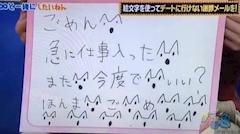 ○○と一緒にしたいねん
絵文字を使ってデートに行けない謝罪メールを!
ごめん
急に仕事入った
また今度でいい?
ほんまごめ